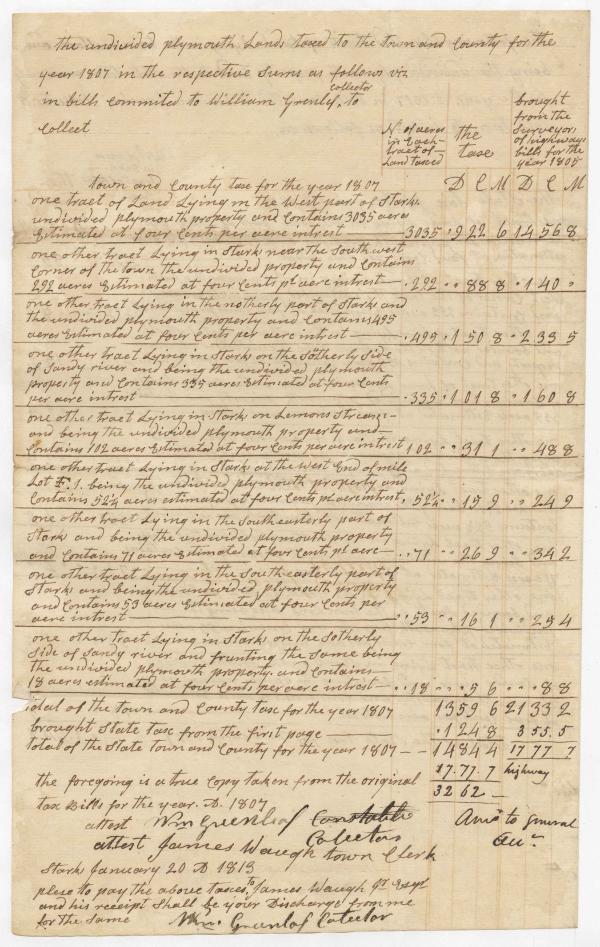 the undivided plymouth Lands taxed to the town and County for the
year 1807 in the respective Sums as follows viz
in bills commited to William Grenlef, collector to
Collect
No of acres in Each tract of Land taxed
the taxe
brought from the Surveyors of highways bills for the year 1805
D C M D C M
town and County taxe for the year 1807
one tract of Land Lying in the West part of Starks
undivided plymouth property and Contains 3035 acres
Estimated at four Cents per acre intrest 3035 . 9 22 6 14 56 8
one other tract Lying in Starks near the Southwest
Corner of the town the undivided property and Contains
292 acres Estimated at four Cents pr acre intrest . 292 " 88 8 . 1 40 "
one other tract Lying in the notherly part of Starks and
the undivided plymouth property and Contains 495
acres Estimated at four Cents per acre intrest . 495 . 1 50 8 . 2 33 5
one other tract Lying in Stark on the Sotherly Side
of Sandy river and being the undivided plymouth
property and Contains 335 acres Estimated at four Cents
per acre intrest . 335 . 1 01 8 . 1 60 8
one other tract Lying in Stark on Lemons Stream
and being the undivided plymouth property and
Contains 102 acres Estimated at four Cents per acre intrest 102 " 31 1 " 48 8
one other tract Lying in Stark at the West End of mile
Lot No. 1. being the undivided plymouth property and
Contains 52¼ acres estimated at four Cents pr acre intrest . 52¼ " 15 9 " 24 9
one other tract Lying in the Southeasterly part of
Stark and being the undivided plymouth property
and Contains 71 acres Estimated at four Cents pr acre " 71 " 26 9 " 34 2
one other tract Lying in the Southeasterly part of
Starks and being the undivided plymouth property
and Contains 53 acres Estimated at four Cents per
acre intrest " 53 " 16 1 " 25 4
one other tract Lying in Starks on the Sotherly
Side of Sandy river and frunting the Same being
the undivided plymouth property and Contains
18 acres estimated at four Cents per acre intrest " 18 " 5 6 " 8 8
total of the town and County taxe for the year 1807 13 59 6 21 33 2
brought State taxe from the first page . 1 24 8 3 55.5
total of the State town and County for the year 1807 14 84 4 17 77 7
17.77.7 highway
32 62 –
the foregoing is a true Copy taken from the original
tax Bills for the year. D. 1807
attest Wm Greenleaf Constable
Colector
Amo to General
attest James Waugh town Clerk
Starks January 20 D 1813
please to pay the above taxes to James Waugh Jr Esqr
and his receipt Shall be your Discharge from me
for the Same Wm. Greenlef Colector